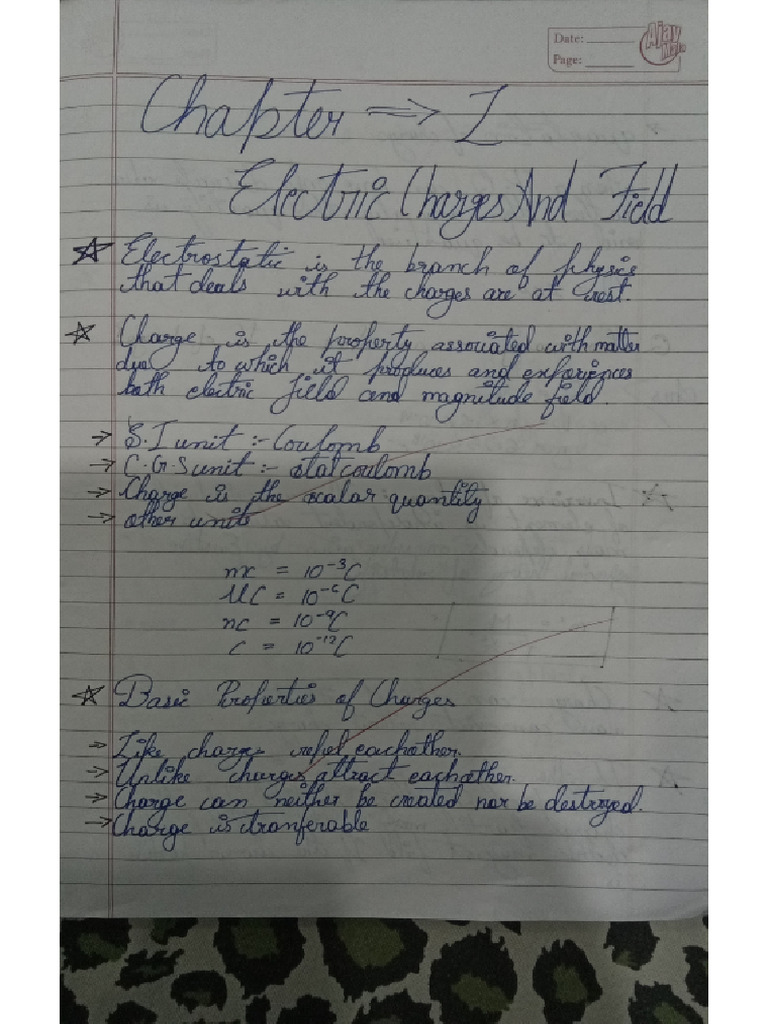 Date:
Page:
Ajay
Chapter ⇒ 1
Electric Charges And Field
☆ Electrostatic is the branch of physics
that deals with the charges are at rest.
☆ Charge is the property associated with matter
due to which it produces and experiences
both electric field and magnitude field.
→ S.I unit :- Coulomb
→ C.G.S unit :- statcoulomb
→ Charge is the scalar quantity
→ other units
mc = 10⁻³C
μC = 10⁻⁶C
nc = 10⁻⁹C
C = 10⁻¹²C
☆ Basic Properties of Charges
→ Like charges repel eachother.
→ Unlike charges attract eachother.
→ Charge can neither be created nor be destroyed.
→ Charge is tranferable